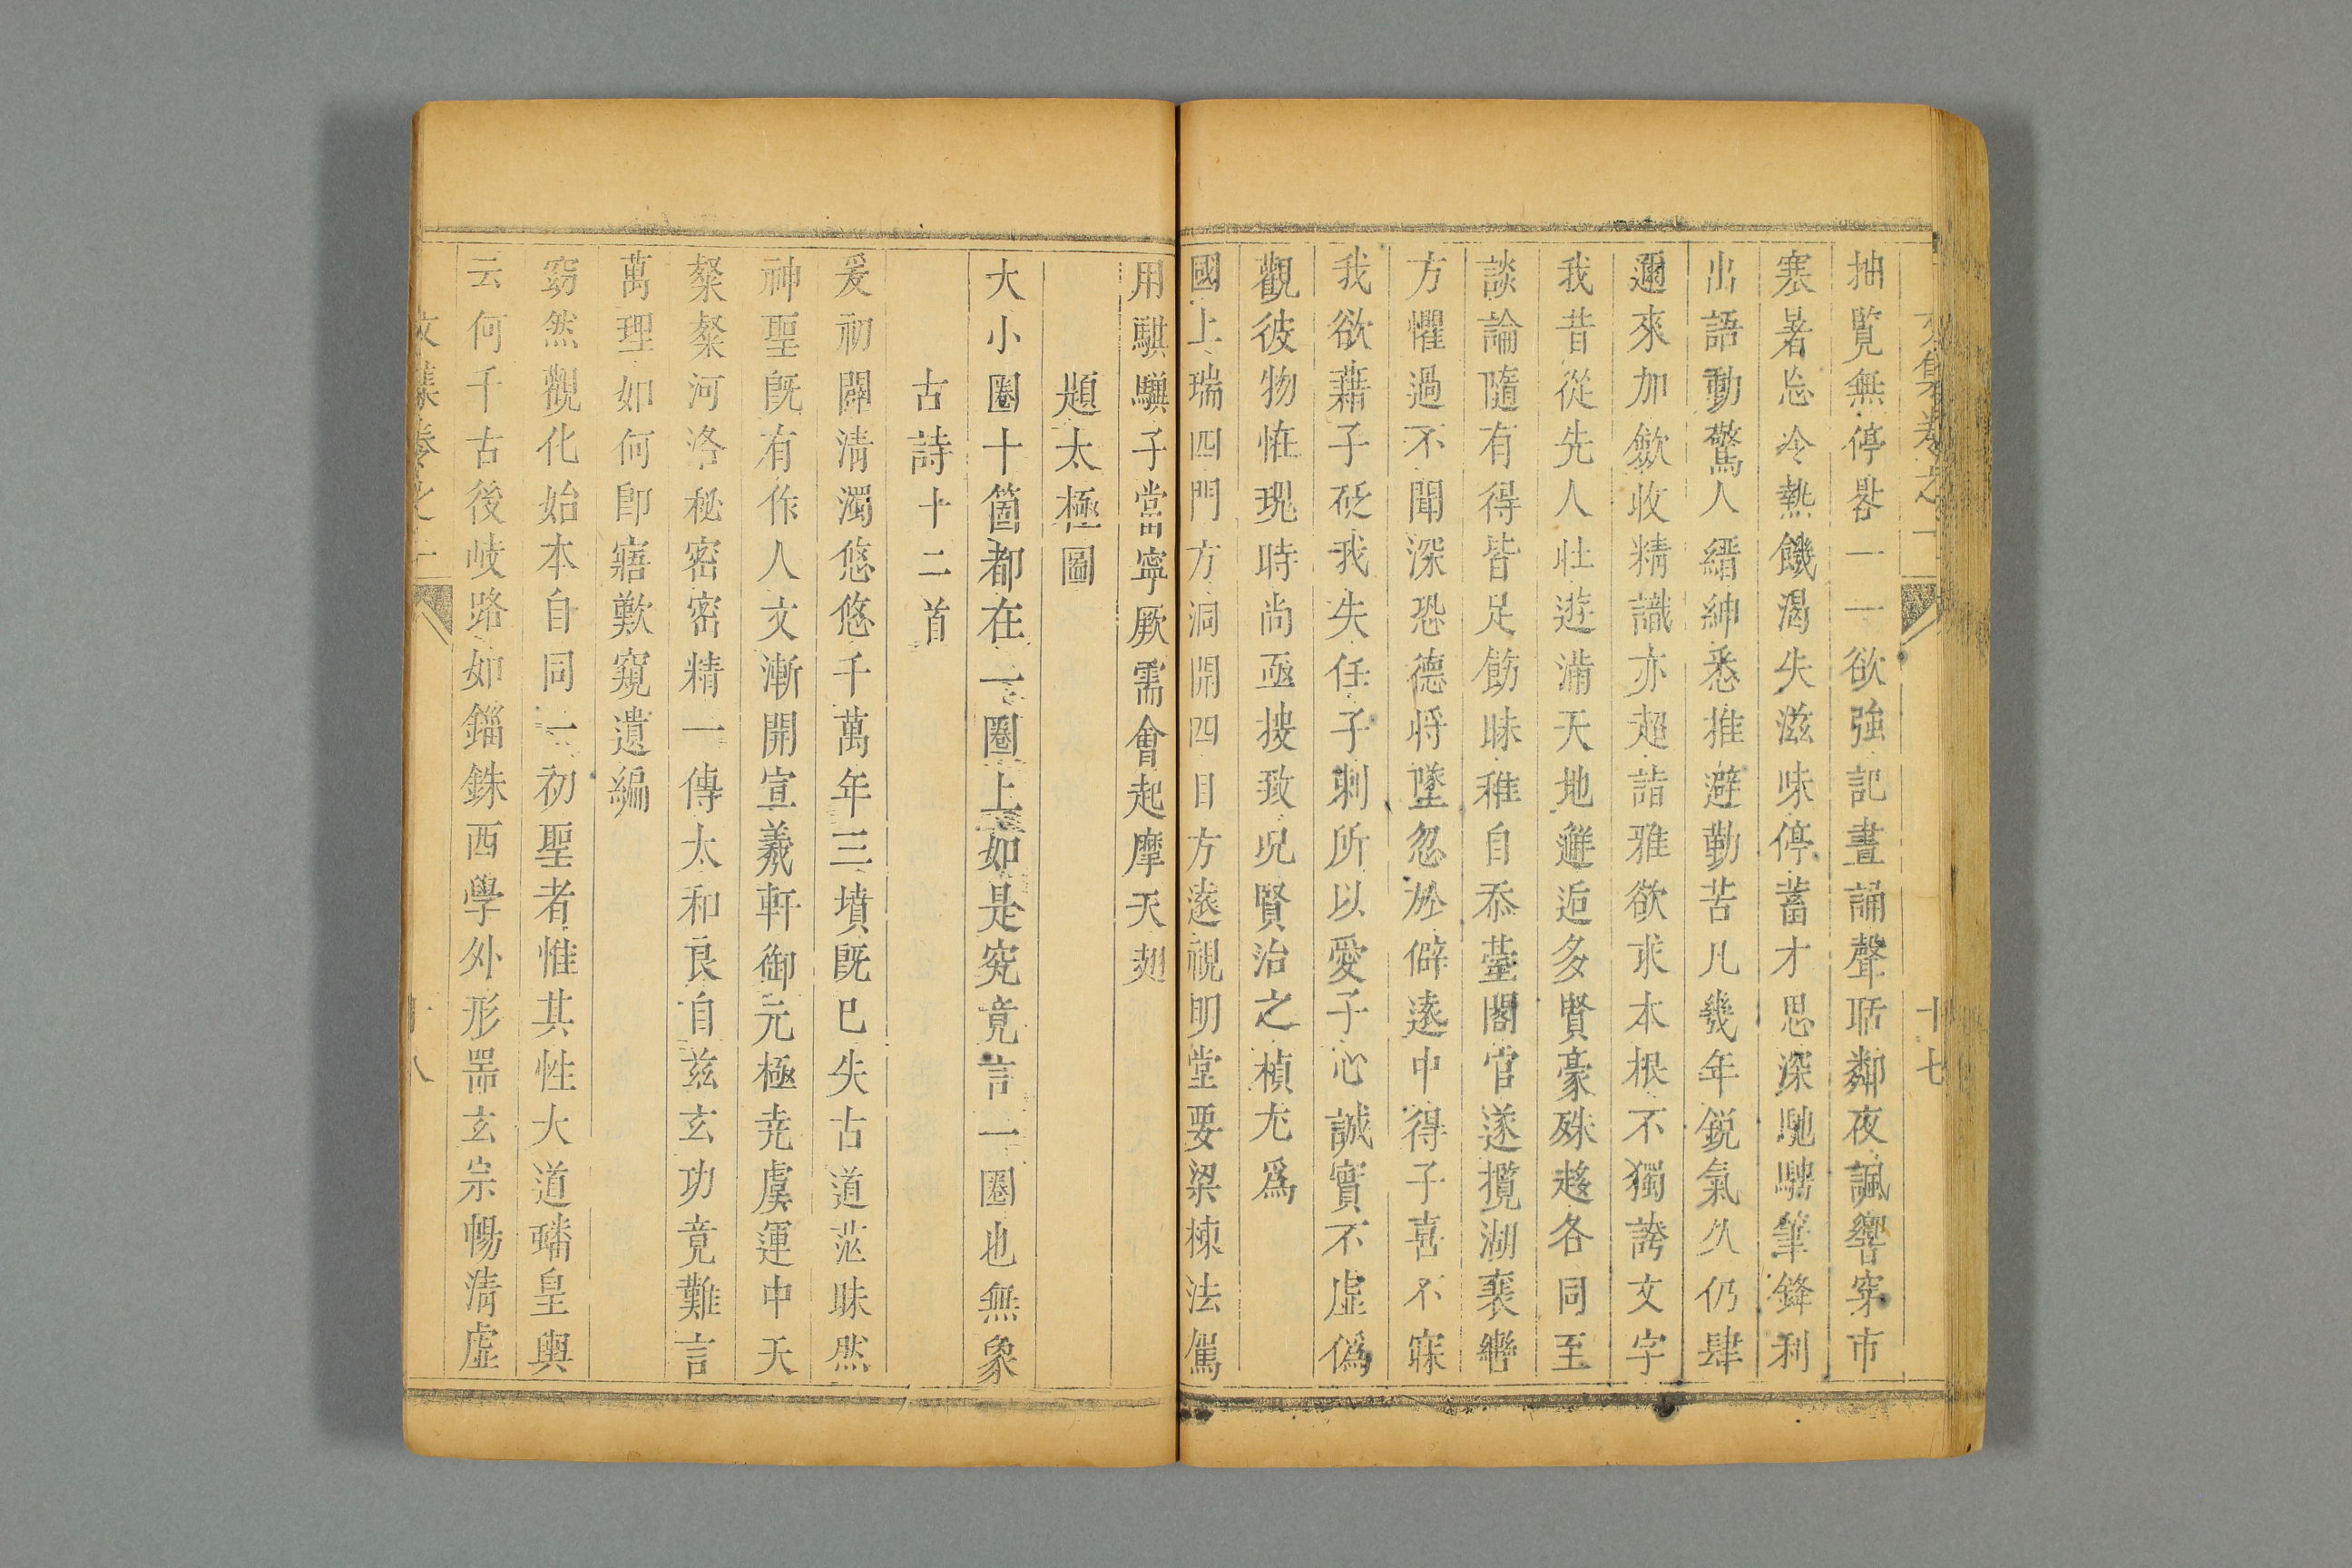 抽覽無停晷一一欲強記晝誦聲聒鄰夜諷響穿市
寒暑忘冷熱饑渴失滋味停蓄才思深馳騁筆鋒利
出語動驚人縉紳悉推避勤苦凡幾年銳氣久仍肆
邇來加斂收精識亦超詣雅欲求本根不獨誇文字
我昔從先人壯遊滿天地邂逅多賢豪殊趍各同至
談論隨有得皆足飭昧稚自忝薹閣官遂攬湖襄轡
方懼過不聞深恐德將墜忽於僻遠中得子喜不寐
我欲藉子砭我失任子刺所以愛子心誠實不虛僞
觀彼物恠現時尚亟搜致況賢治之楨尤爲
國上瑞四門方洞開四目方遠視明堂要梁棟法駕
用騏驥子當寧厥需會起摩天翅
題太極圖
大小圈十箇都在一圈上如是究竟言一圈也無象
古詩十二首
爰初闢清濁悠悠千萬年三墳既已失古道茫昧然
神聖既有作人文漸開宣羲軒御元極尭虞運中天
粲粲河洛秘密密精一傳太和良自兹玄功竟難言
萬理如何即寤歎窺遺編
窈然觀化始本自同一初聖者惟其性大道皤皇輿
云何千古後岐路如錙銖西學外形噐玄宗暢清虛
十七